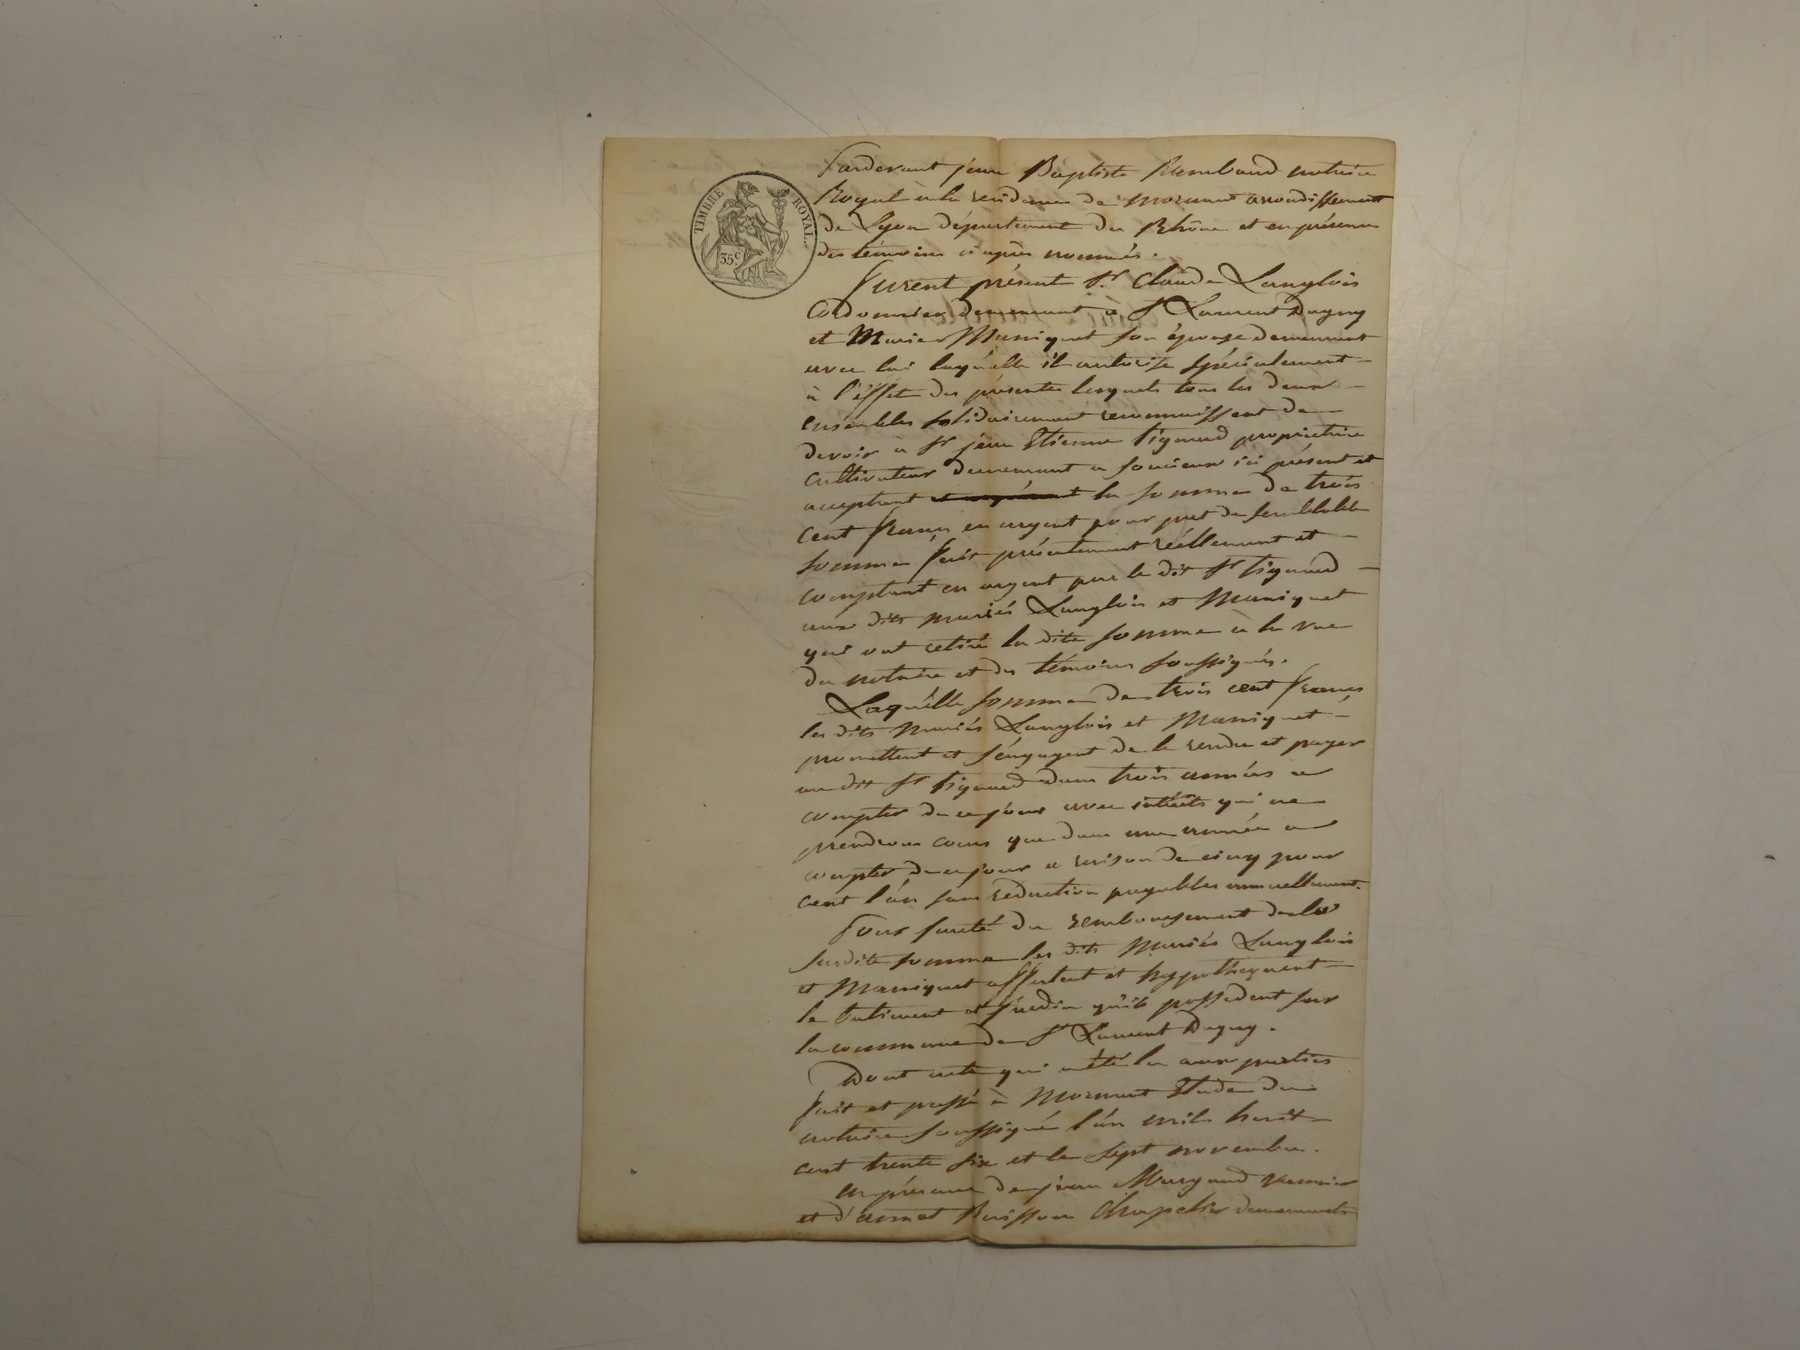 TIMBRE ROYAL
35c
Pardevant jean Baptiste Rambaud notaire
Royal à la residence de mornant arrondissement
de Lyon département du Rhône et en présence
des témoins ci après nommés.
Furent présent Sr. Claude Langlois
Cordonnier demeurant à St Laurent Dagny
et Marie Maniquet son épouse demeurant
avec lui laquelle il autorise spécialement
à l'éffet des présentes lesquels tous les deux
ensembles solidairement reconnaissent de
devoir a Sr jean Etienne Pigaud propriétaire
cultivateur demeurant a Soucieux ici présent et
acceptant la somme de trois
cent francs en argent pour pret de semblable
somme fait présentement reéllement et
comptant en argent par le dit Sr Pigaud
aux dits mariés Langlois et Maniquet
qui ont retiré la dite somme à la vue
du notaire et des témoins soussignés.
Laquelle somme de trois cent francs
les dits mariés Langlois et Maniquet
promettent et s'engagent de la rendre et payer
au dit Sr Pigaud dans trois années a
compter de ce jour avec intérêts qui ne
prendron cours que dans une année a
compter de ce jour a raison de cinq pour
cent l'an sans réduction payables annuellement.
Pour sureté du remboursement de la
susdite somme les dits Mariés Langlois
et Maniquet affectent et hyppothequent
le batiment et jardin qu'ils possedent sur
la commune de St Laurent Dagny.
Dont acte qui a été lu aux parties
fait et passé à Mornant Etude du
notaire soussigné l'an mil huit
cent trente six et le sept novembre.
en présence de jean
et d'annet Buisson Chapelier demeurants